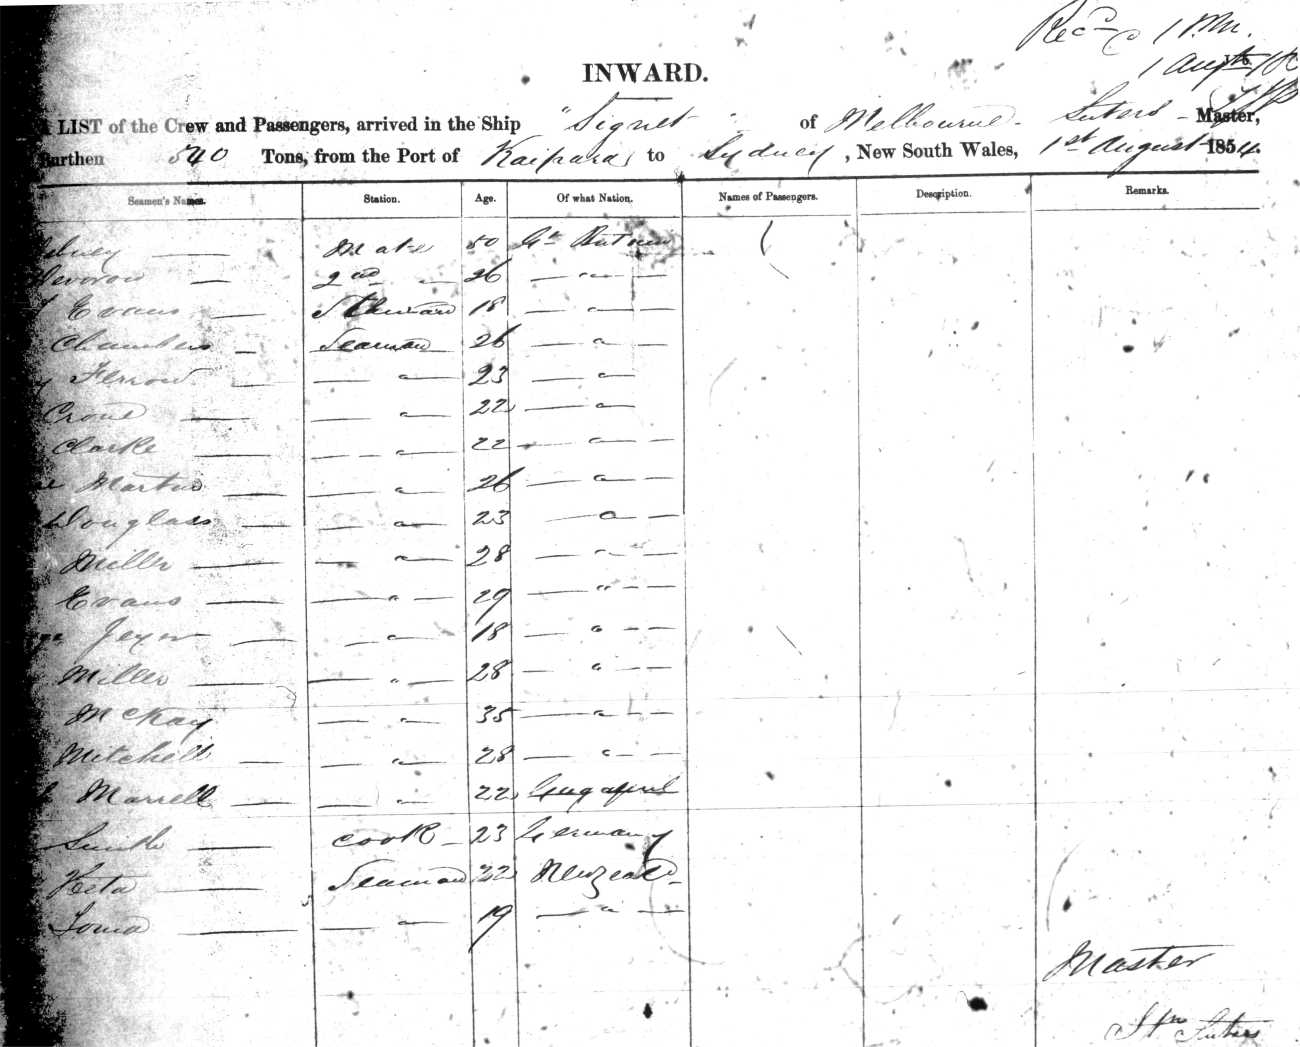 Rec 1 P.M.
1 Augt
INWARD.
A LIST of the Crew and Passengers, arrived in the Ship "Signet" of Melbourne - Suters - Master,
Burthen 540 Tons, from the Port of Kaipara to Sydney, New South Wales, 1st August 1854.
Seamen's Names. Station. Age. Of what Nation. Names of Passengers. Description. Remarks.
Mate 50 Gt Britain
2nd 26 "
Evans Steward 18 "
Chambers Seaman 26 "
Ferrow " 23 "
Crone " 22 "
Clarke " 22 "
Martin " 26 "
Douglass " 23 "
Miller " 28 "
Evans " 29 "
" 18 "
Miller " 28 "
McKay " 35 "
Mitchell " 28 "
Marrell " 22
Smith Cook 23 Germany
Seaman 22 Newzeald
" 19 "
Master
Suters